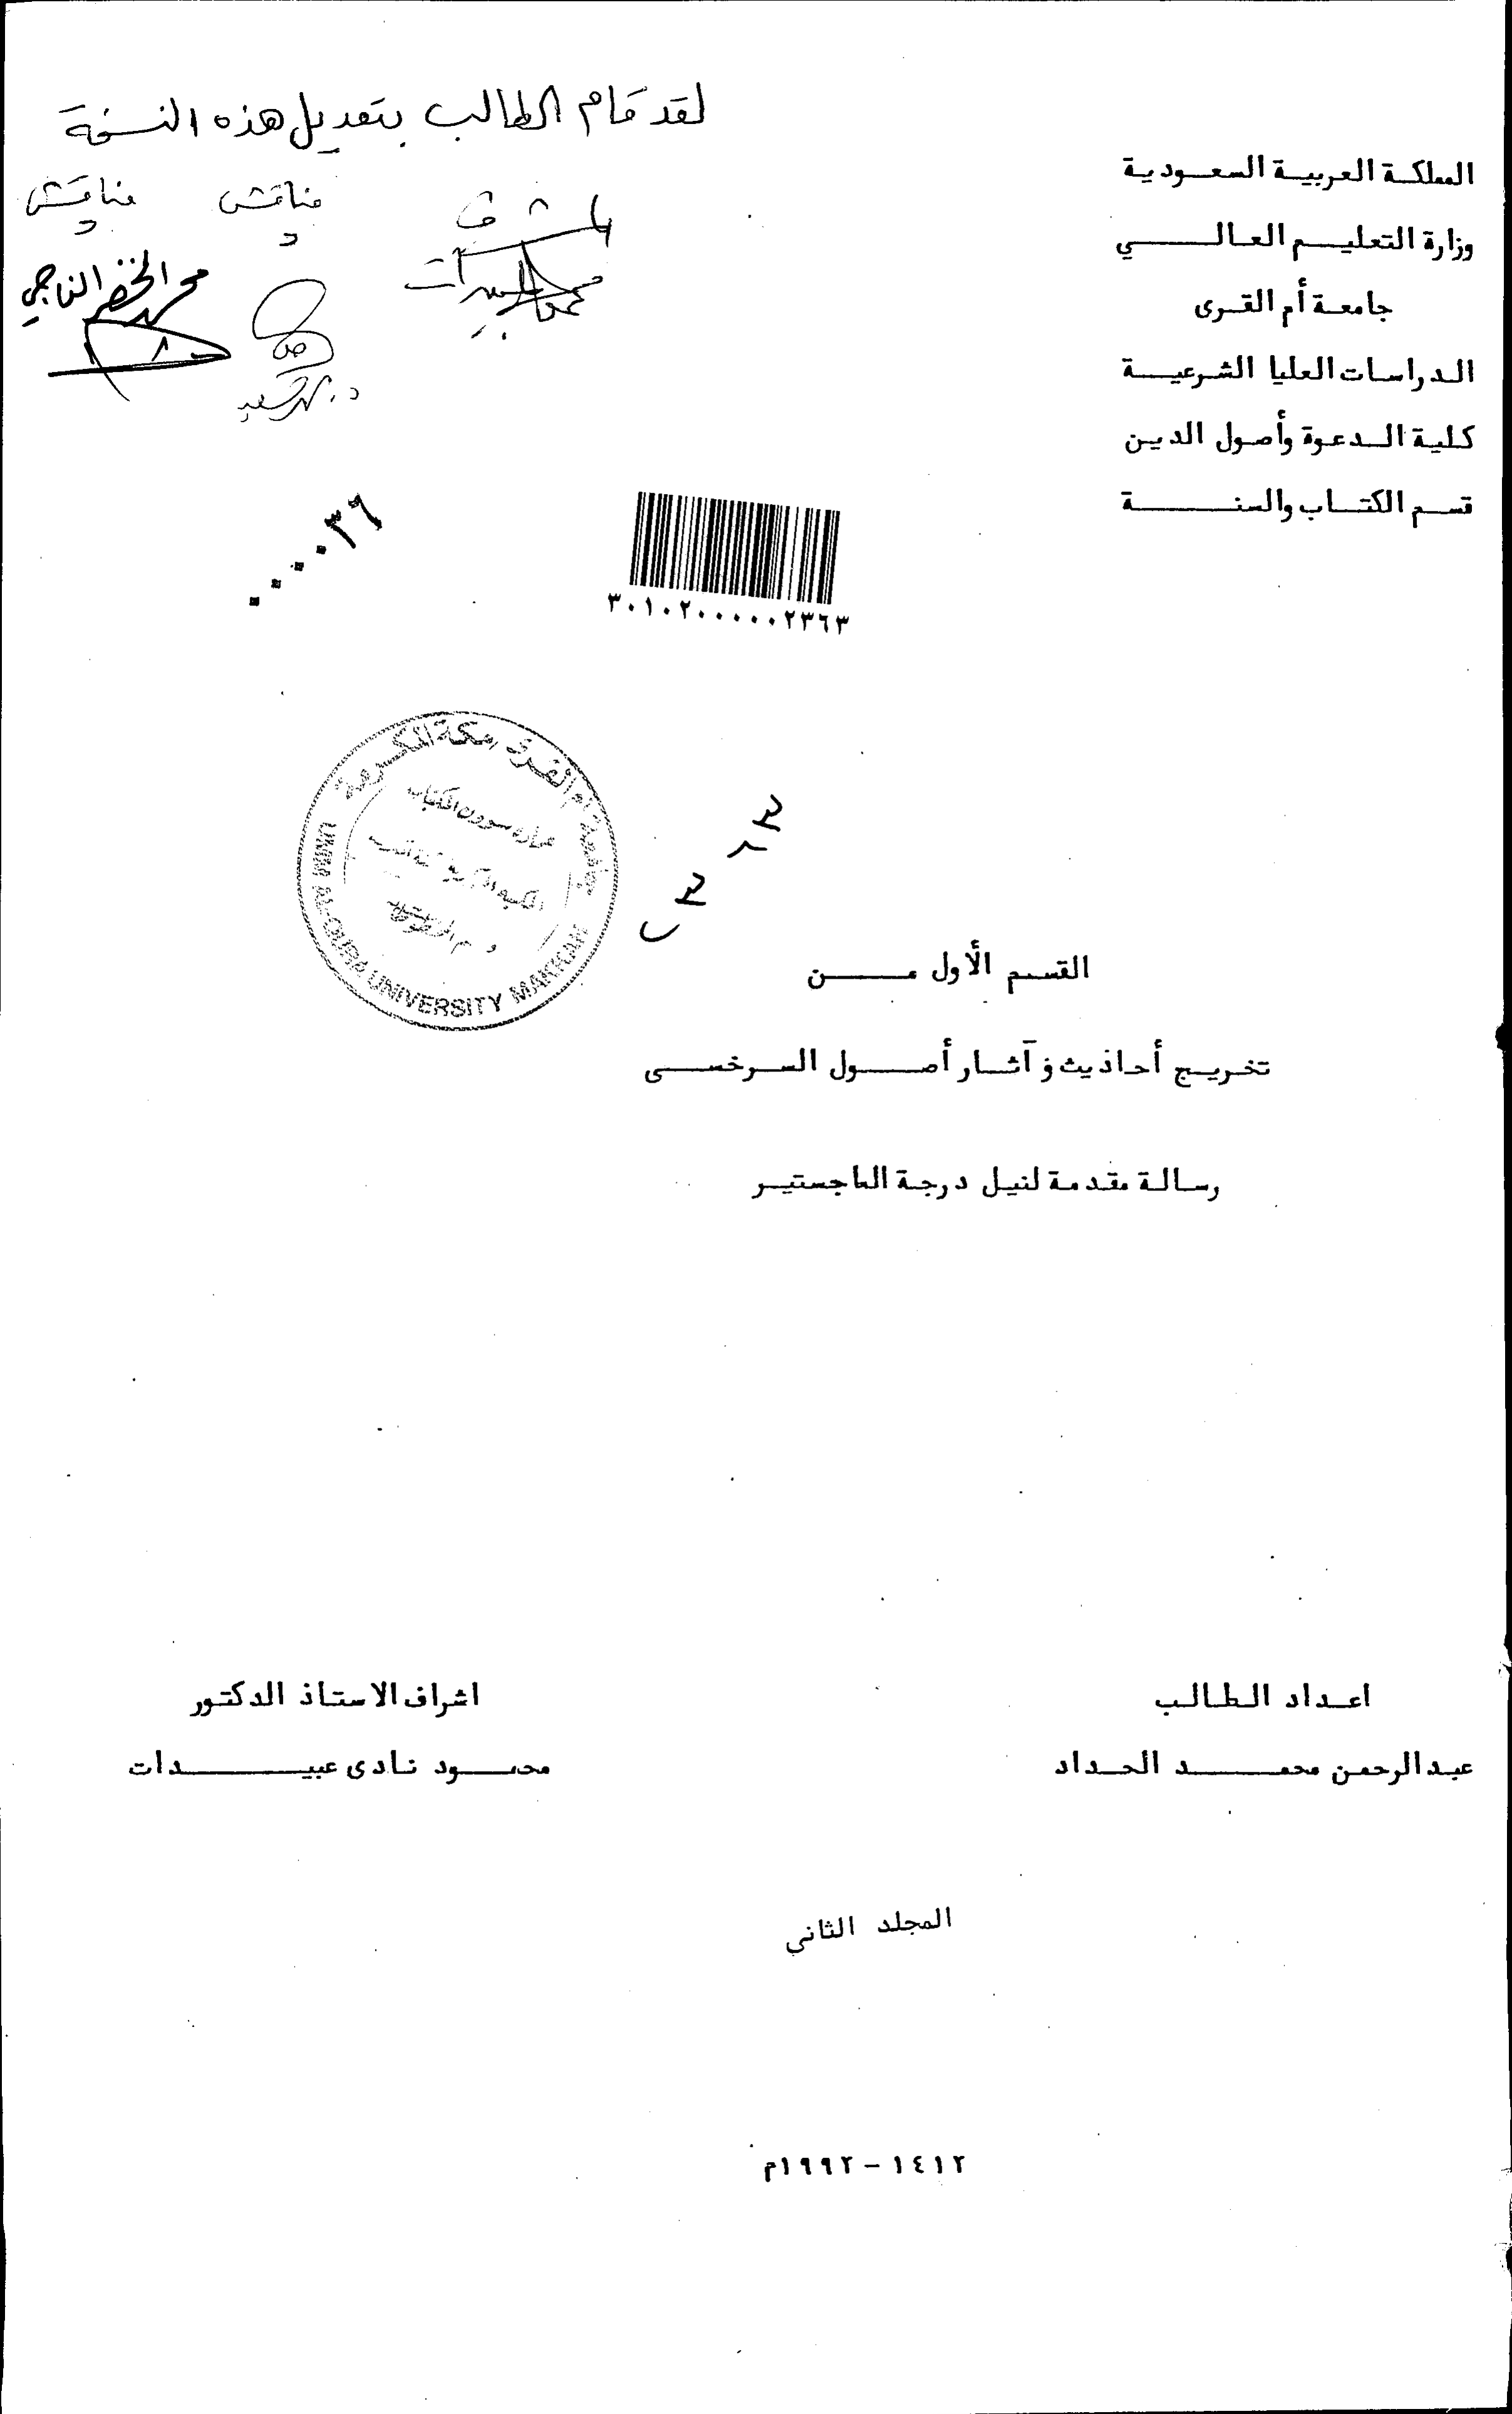 لقد قام الطالب بتعديل هذه النسخة
المملكة العربية السعودية
وزارة التعليم العالي
جامعة أم القرى
الدراسات العليا الشرعية
كلية الدعوة وأصول الدين
قسم الكتاب والسنة
مشرف
مناقش
مناقش
محمد الخضر الناجي
٠٠٠٠٣٦
٣٠١٠٢٠٠٠٠٠٢٣٦٣
جامعة أم القرى بمكة المكرمة
UMM AL-QURA UNIVERSITY MAKKAH
القسم الأول من
تخريج أحاديث و آثار أصول السرخسى
رسالة مقدمة لنيل درجة الماجستير
اعداد الطالب
عبدالرحمن محمد الحداد
اشراف الاستاذ الدكتور
محمود نادى عبيدات
المجلد الثانى
١٤١٢ – ١٩٩٢م